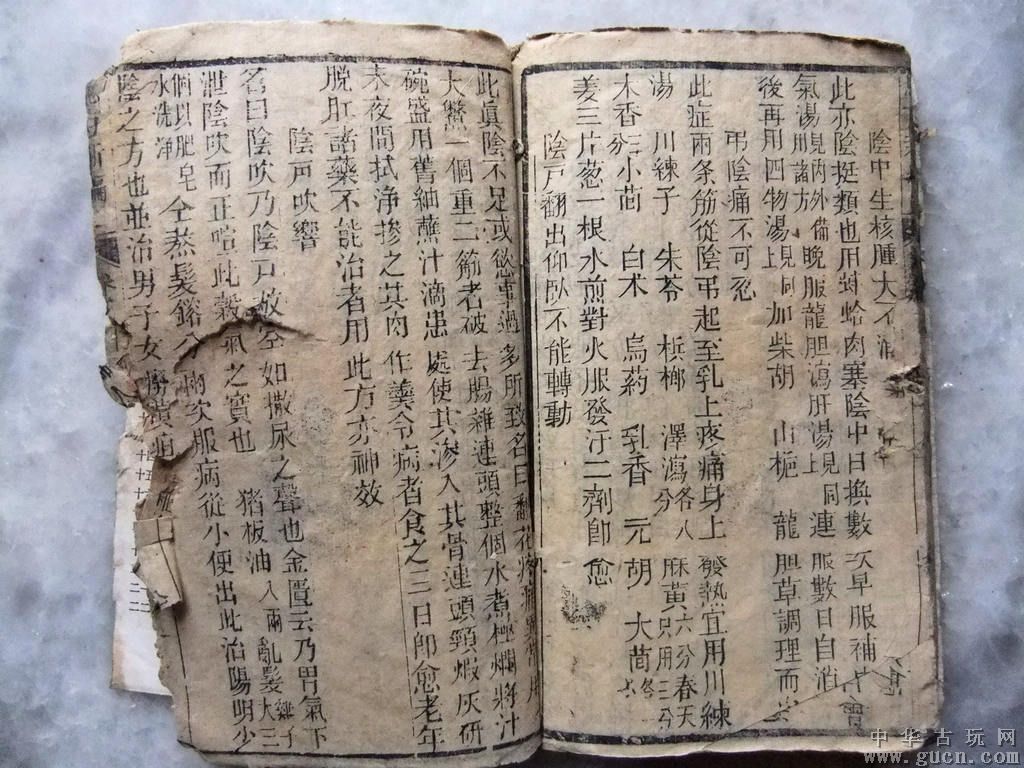 陰中生核腫大不消
此亦陰挺類也用蚌蛤肉塞陰中日換數次早服補中
氣湯見內外備用諸方晚服龍胆瀉肝湯見上同連服數日自消
後再用四物湯見上同加柴胡 山梔 龍胆草調理而安
弔陰痛不可忍
此症兩条筋從陰弔起至乳上疼痛身上發熱宜用川練
湯 川練子 朱苓 梹榔 澤瀉各八分 麻黃六分春天只用三分
木香三分 小茴 白术 烏葯 乳香 元胡 大茴各
姜三片葱一根水煎對火服發汗二劑卽愈
陰戶翻出仰臥不能轉動
此眞陰不足或慾事過多所致名曰翻花
大鱉一個重二觔老破去腸雜連頭整個水煮極爛將汁
碗盛用舊紬蘸汁滴患處使其滲入其骨連頭頸煅灰研
末夜間拭净摻之其肉作羹令病者食之三日卽愈老年
脫肛諸藥不能治者用此方亦神效
陰戶吹響
名曰陰吹乃陰戶放空如撒尿之聲也金匱云乃胃氣下
泄陰吹而正喧此穀氣之實也 猪板油八兩 亂髮大三個以肥皂水洗净
仝熬髮鎔分兩次服病從小便出此治陽明少
陰之方也並治男子女癆